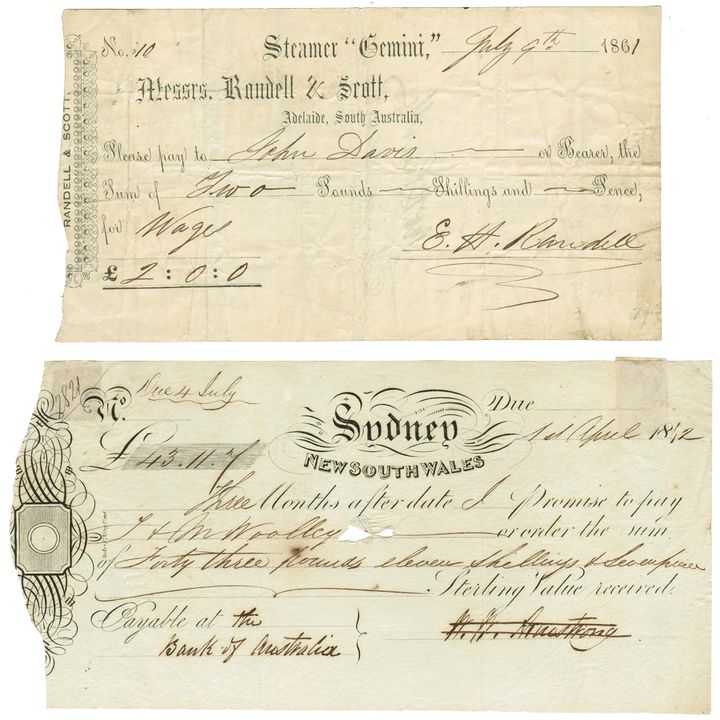 RANDELL & SCOTT.
No. 10 Steamer "Gemini," July 9th 1861
Messrs. Randell & Scott,
Adelaide, South Australia,
Please pay to John Davis or Bearer, the
Sum of Two Pounds Shillings and Pence,
for Wages
E. H. Randell
£ 2 : 0 : 0
2821
No. Due 4 July Due
Sydney 1st April 1842
£ 43.11.7
NEW SOUTH WALES
Three Months after date I Promise to pay
T & M Woolley or order the sum
of Forty three pounds eleven shillings & Sevenpence
Sterling Value received.
Payable at the
Bank of Australia
W. H. Armstrong